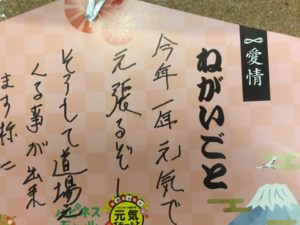 愛情
ねがいごと
今年一年元気で
元張るぞー
そうして道場に
くる事が出来
ます様に
元気